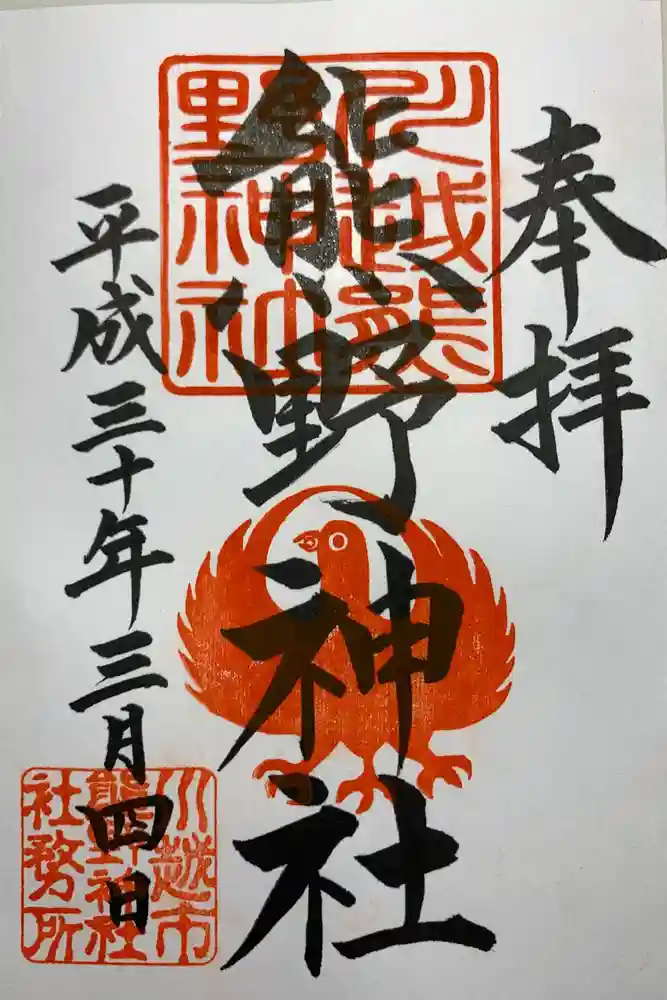 奉拝
川越熊
野神社
熊野神社
平成三十年三月四日
川越市
熊野神社
社務所